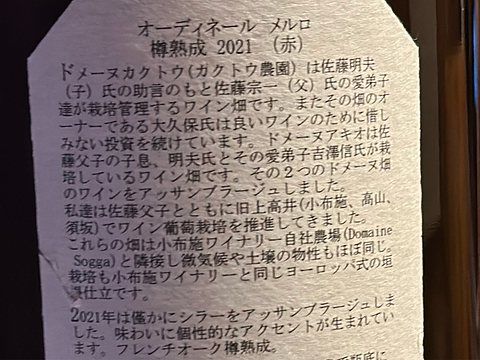 オーディネール メルロ
樽熟成 2021 （赤）
ドメーヌカクトウ(ガクトウ農園) は佐藤明夫
（子）氏の助言のもと佐藤宗一（父）氏の愛弟子
達が栽培管理するワイン畑です。またその畑のオ
ーナーである大久保氏は良いワインのために惜し
みない投資を続けています。ドメーヌアキオは佐
藤父子の子息、明夫氏とその愛弟子吉澤信氏が栽
培しているワイン畑です。その２つのドメーヌ畑
のワインをアッサンブラージュしました。
私達は佐藤父子とともに旧上高井(小布施、高山、
須坂)でワイン葡萄栽培を推進してきました。
これらの畑は小布施ワイナリー自社農場(Domaine
Sogga)と隣接し微気候や土壌の物性もほぼ同じ。
栽培も小布施ワイナリーと同じヨーロッパ式の垣
仕立です。
2021年は僅かにシラーをアッサンブラージュしま
した。味わいに個性的なアクセントが生まれてい
ます。フレンチオーク樽熟成。
瓶底に